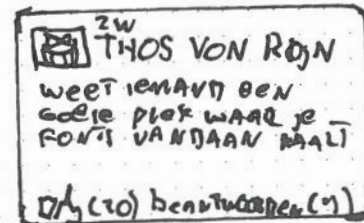 2W
THOS VON ROIJN
WEET IEMAND EEN
GOEIE PLEK WAAR JE
FONTS VANDAAN HAALT
(20) beantwoorden (4)